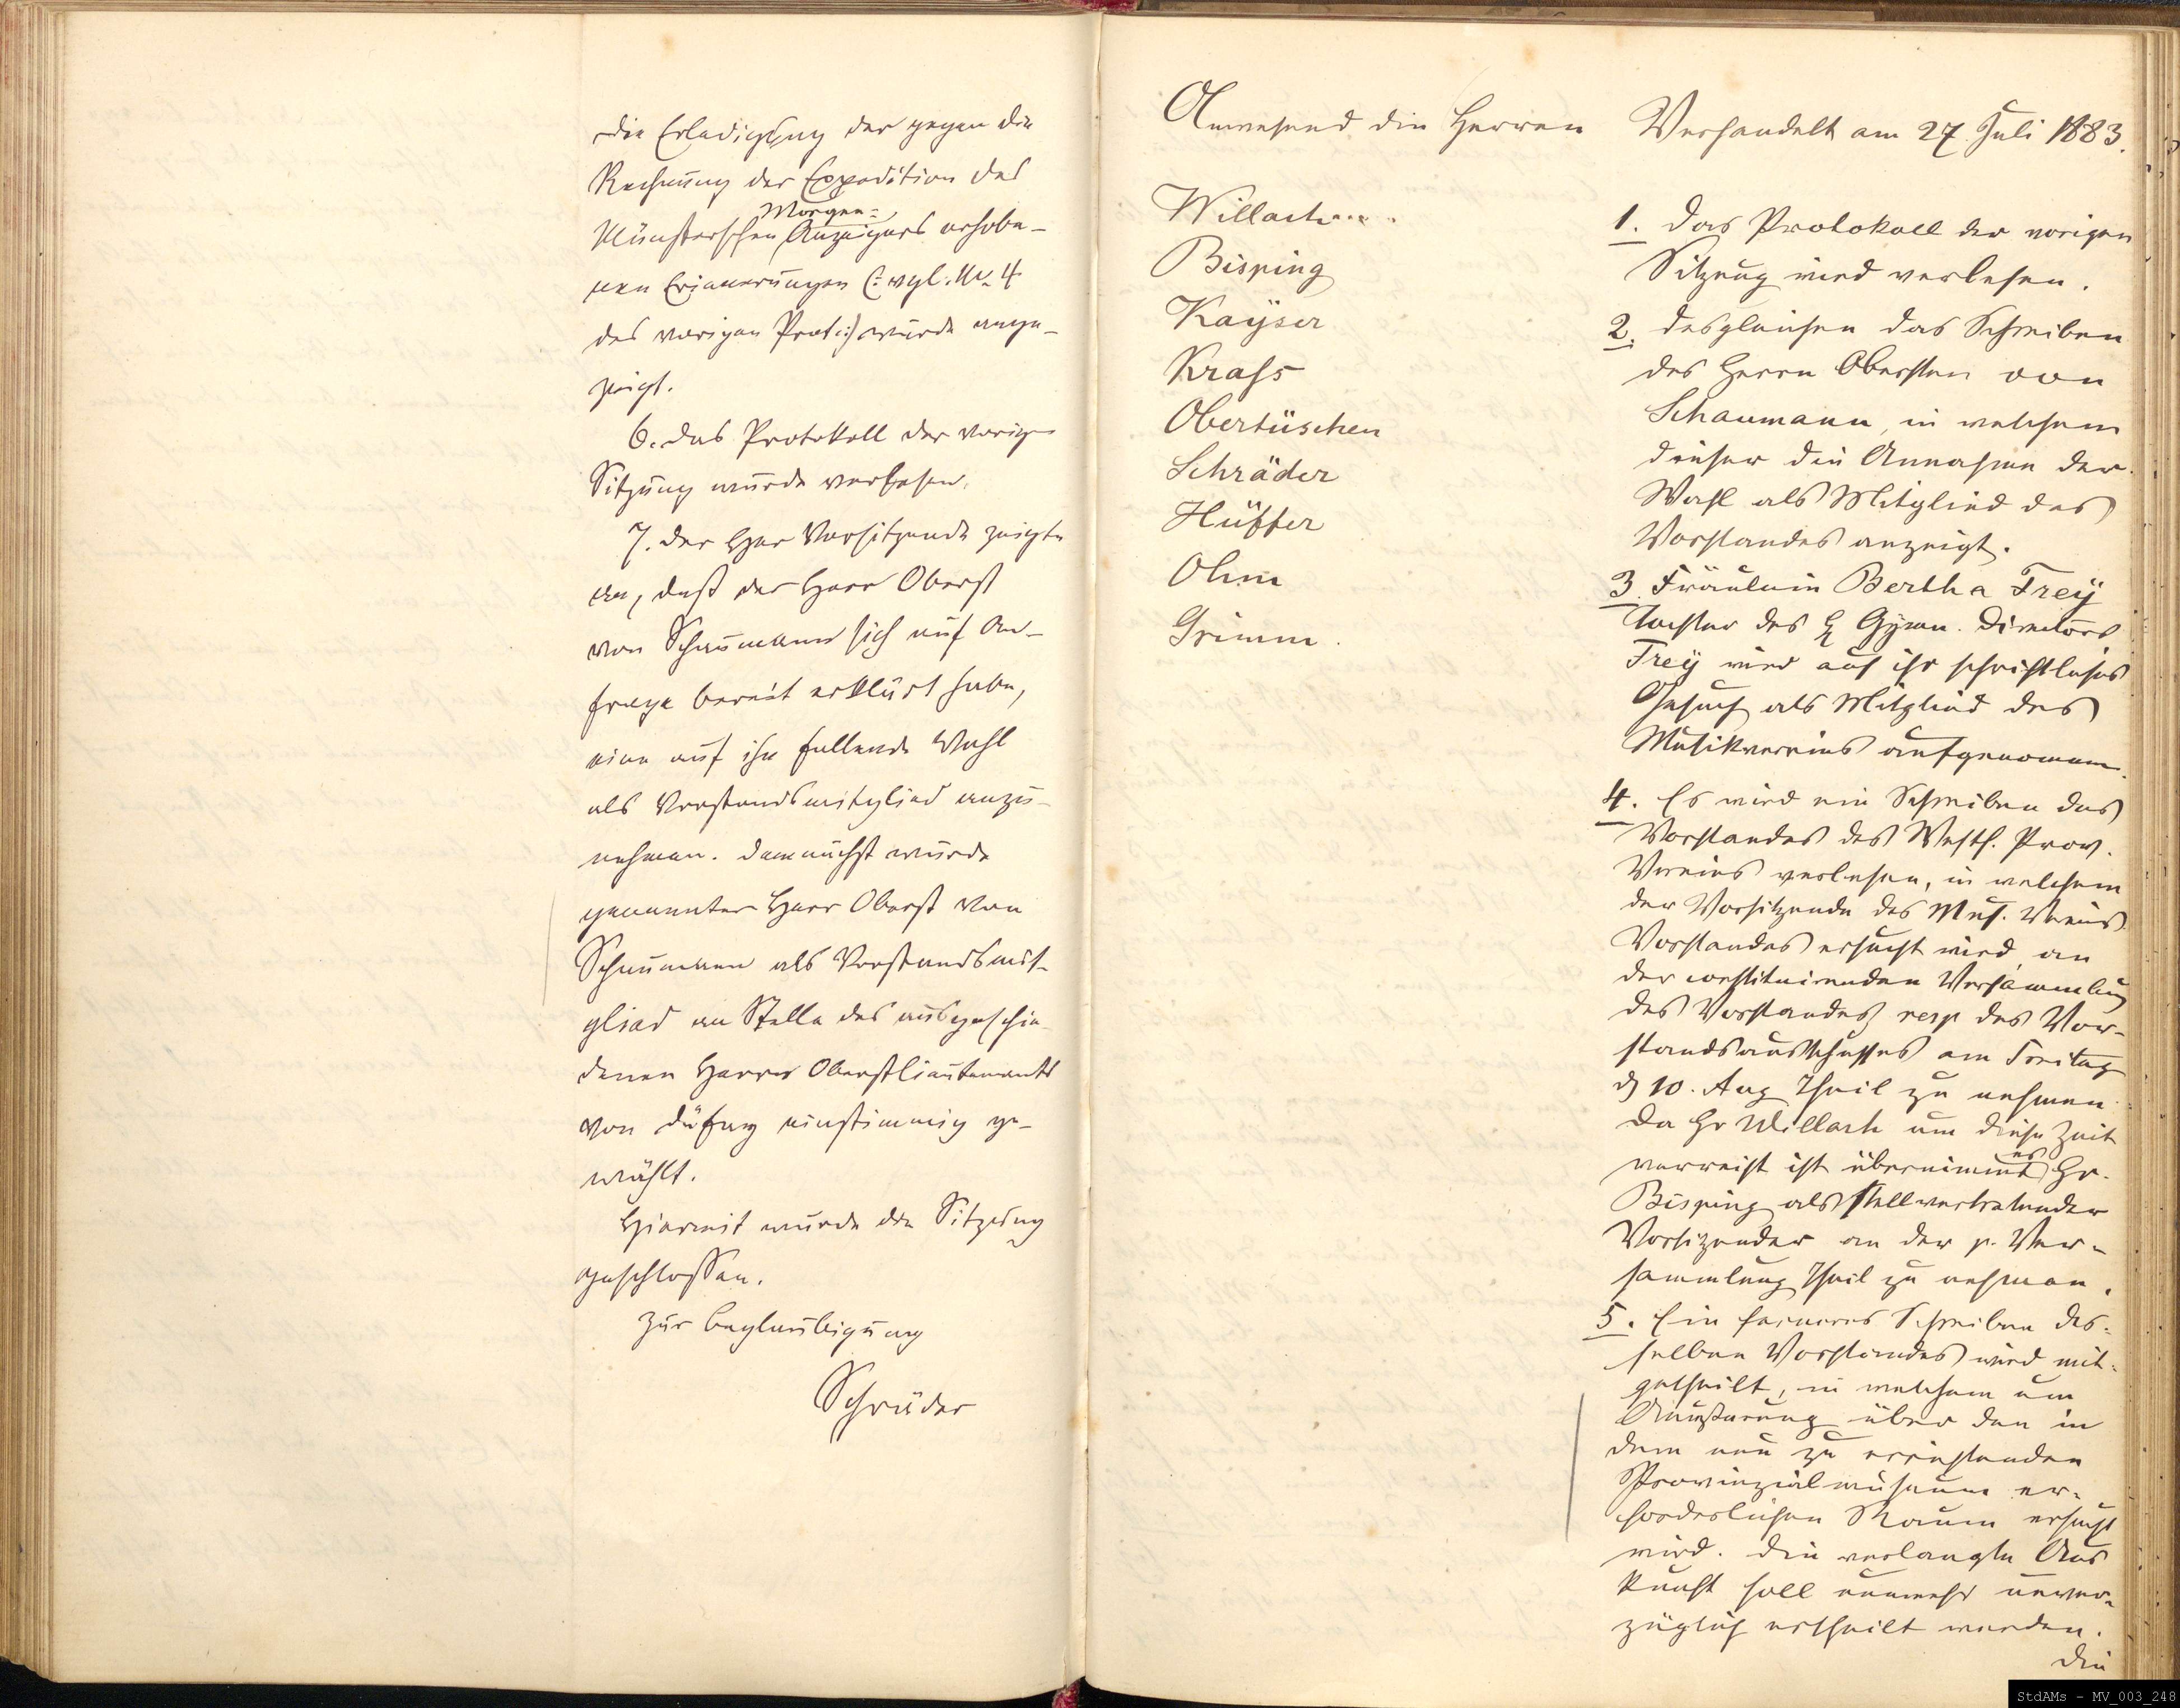 die Erledigung der gegen die
Rechnung der Expedition des
Morgen=
Münsterschen Anzeigers erhobe-
nen Erinnerungen (: vgl. Nr. 4
des vorigen Prot:) wurde ange-
zeigt.
6. das Protokoll der vorigen
Sitzung wurde verlesen.
7. der Herr Vorsitzende zeigte
an, daß der Herr Oberst
von Schaumann sich auf An-
frage bereit erklärt habe,
eine auf ihn fallende Wahl
als Vorstandsmitglied anzu-
nehmen. Demnächst wurde
genannter Herr Oberst von
Schaumann als Vorstandsmit-
glied an Stelle des ausgeschie-
denen Herrn Oberstlieutenants
von einstimmig ge-
wählt.
Hiermit wurde die Sitzung
geschlossen.
Zur Beglaubigung
Schräder
Anwesend die Herren
Willach...
Bisping
Kaÿser
Krass
Obertüschen
Schräder
Hüffer
Ohm
Grimm.
Verhandelt am 27. Juli 1883.
1. Das Protokoll der vorigen
Sitzung wird verlesen.
2. desgleichen das Schreiben
des Herrn Obersten von
Schaumann, in welchem
dieser die Annahme der
Wahl als Mitglied des
Vorstandes anzeigt.
3. Fräulein Bertha Freÿ
Tochter des H Gymn. Directors
Freÿ wird auf ihr schriftliches
Gesuch als Mitglied des
Musikvereins aufgenommen.
4. Es wird ein Schreiben des
Vorstandes des Westf. Prov.
Vereins verlesen, in welchem
der Vorsitzende des Mus. Vereins
Vorstandes ersucht wird, an
der constituirenden Versammlung
des Vorstandes resp des Vor-
standsausschusses am Freitag
d 10. Aug Theil zu nehmen.
Da Hr Willach um diese Zeit
verreist ist übernimmt es Hr.
Bisping als stellvertretender
Vorsitzender an der p. Ver-
sammlung Theil zu nehmen.
5. Ein ferneres Schreiben des-
selben Vorstandes wird mit-
getheilt, in welchem um
Aeußerung über den in
dem neu zu errichtenden
Provinzialmuseum er-
forderlichen Raum ersucht
wird. Die verlangte Aus
kunft soll nunmehr unver-
züglich ertheilt werden.
Die
StdAMs - MV_003_248